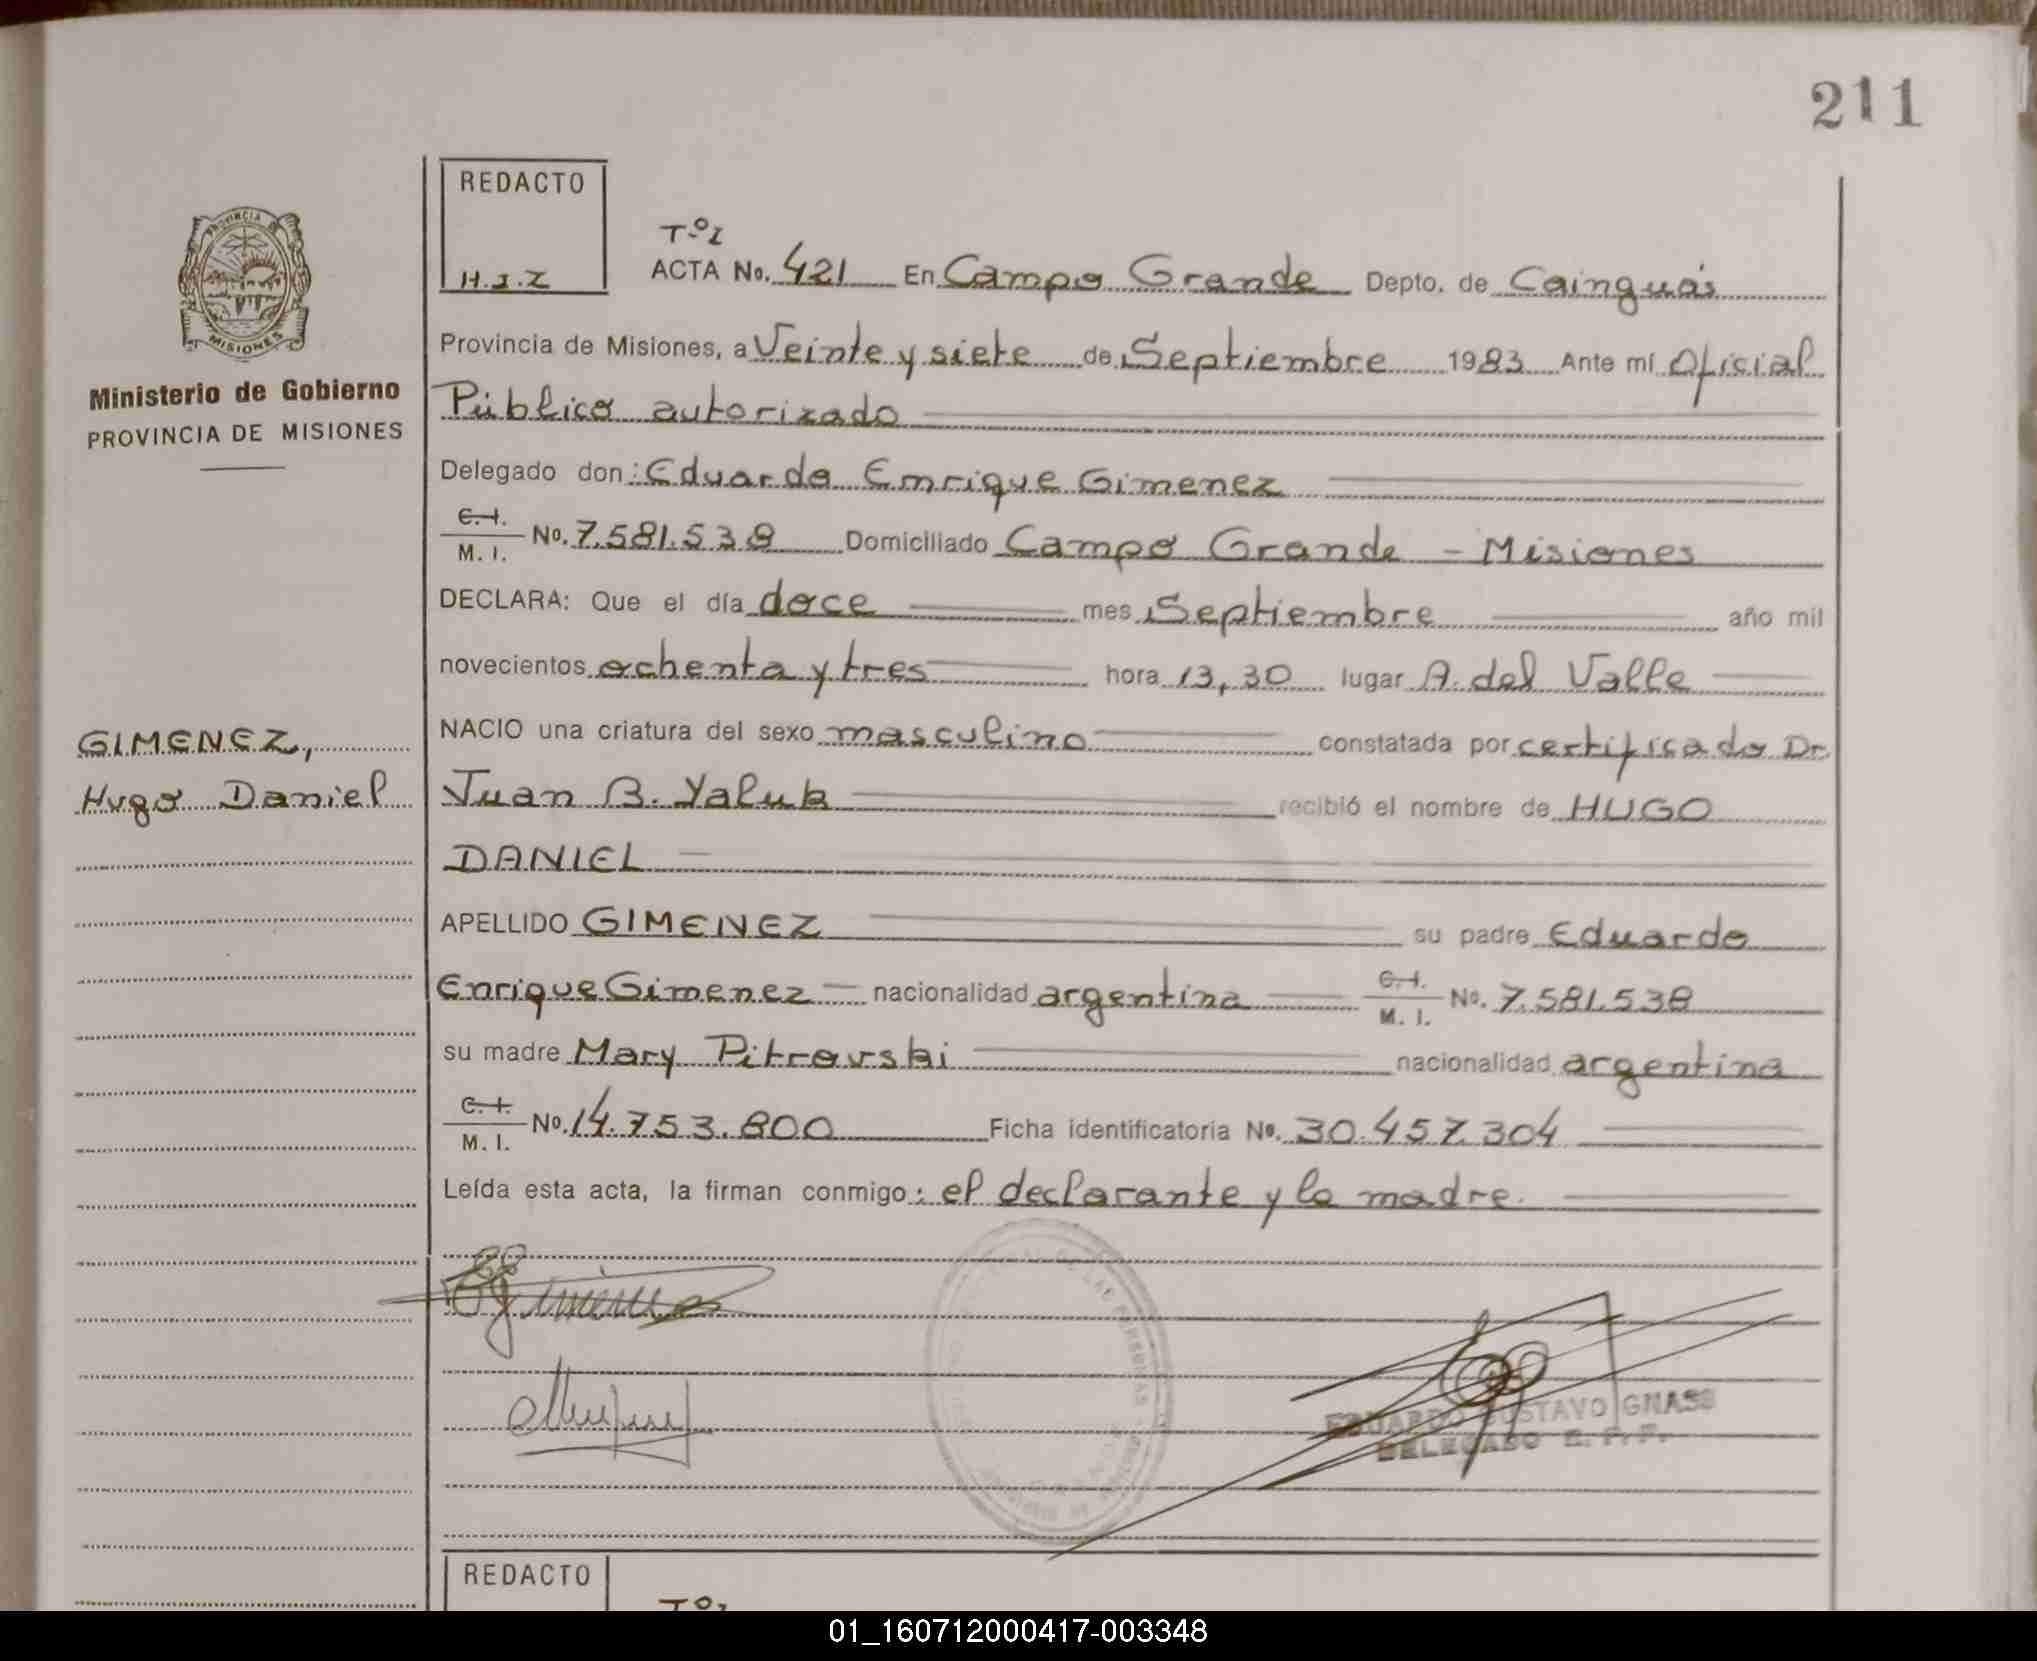 211
REDACTO
H.J.Z
PROVINCIA DE
MISIONES
Ministerio de Gobierno
PROVINCIA DE MISIONES
Tº I
ACTA No. 421 En Campo Grande Depto. de Cainguás
Provincia de Misiones, a Veinte y siete de Septiembre 1983 Ante mí Oficial
Público autorizado
Delegado don: Eduardo Enrique Gimenez
C.I.
M. I. No. 7.581.538 Domiciliado Campo Grande - Misiones
DECLARA: Que el día doce mes Septiembre año mil
novecientos ochenta y tres hora 13,30 lugar A. del Valle
NACIO una criatura del sexo masculino constatada por certificado Dr.
Juan B. Yaluk recibió el nombre de HUGO
DANIEL
GIMENEZ,
Hugo Daniel
APELLIDO GIMENEZ su padre Eduardo
Enrique Gimenez nacionalidad argentina C.I.
M. I. No. 7.581.538
su madre Mary Pitrovski nacionalidad argentina
C.I.
M. I. No. 14.753.800 Ficha identificatoria No. 30.457.304
Leída esta acta, la firman conmigo: el declarante y la madre.
DE LAS PERSONAS
EDUARDO GUSTAVO GNASS
DELEGADO
REDACTO
Tº I
01_160712000417-003348